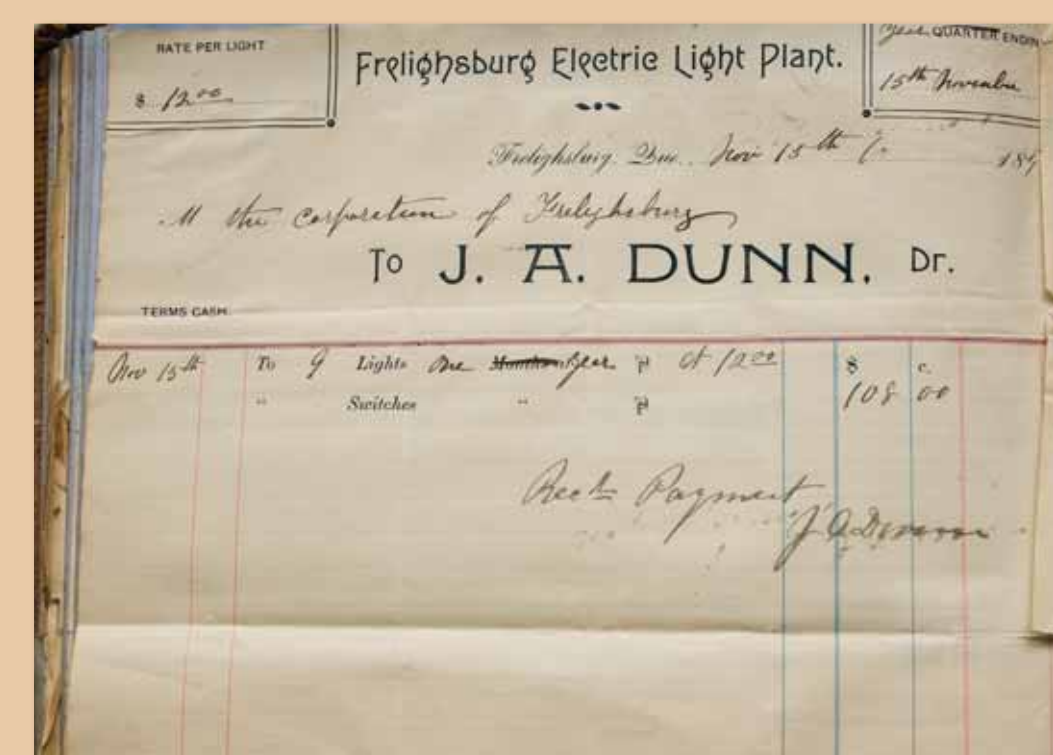 RATE PER LIGHT
$ 12.00
Frelighsburg Electric Light Plant.
Year QUARTER ENDIN
15th November
Frelighsburg, Que. Nov 15th 189
M the corporation of Frelighsburg
To J. A. DUNN. Dr.
TERMS CASH
Nov 15th To 9 Lights one Months Year at 12.00 $ c.
" Switches " 108 00
Recd Payment
J A Dunn